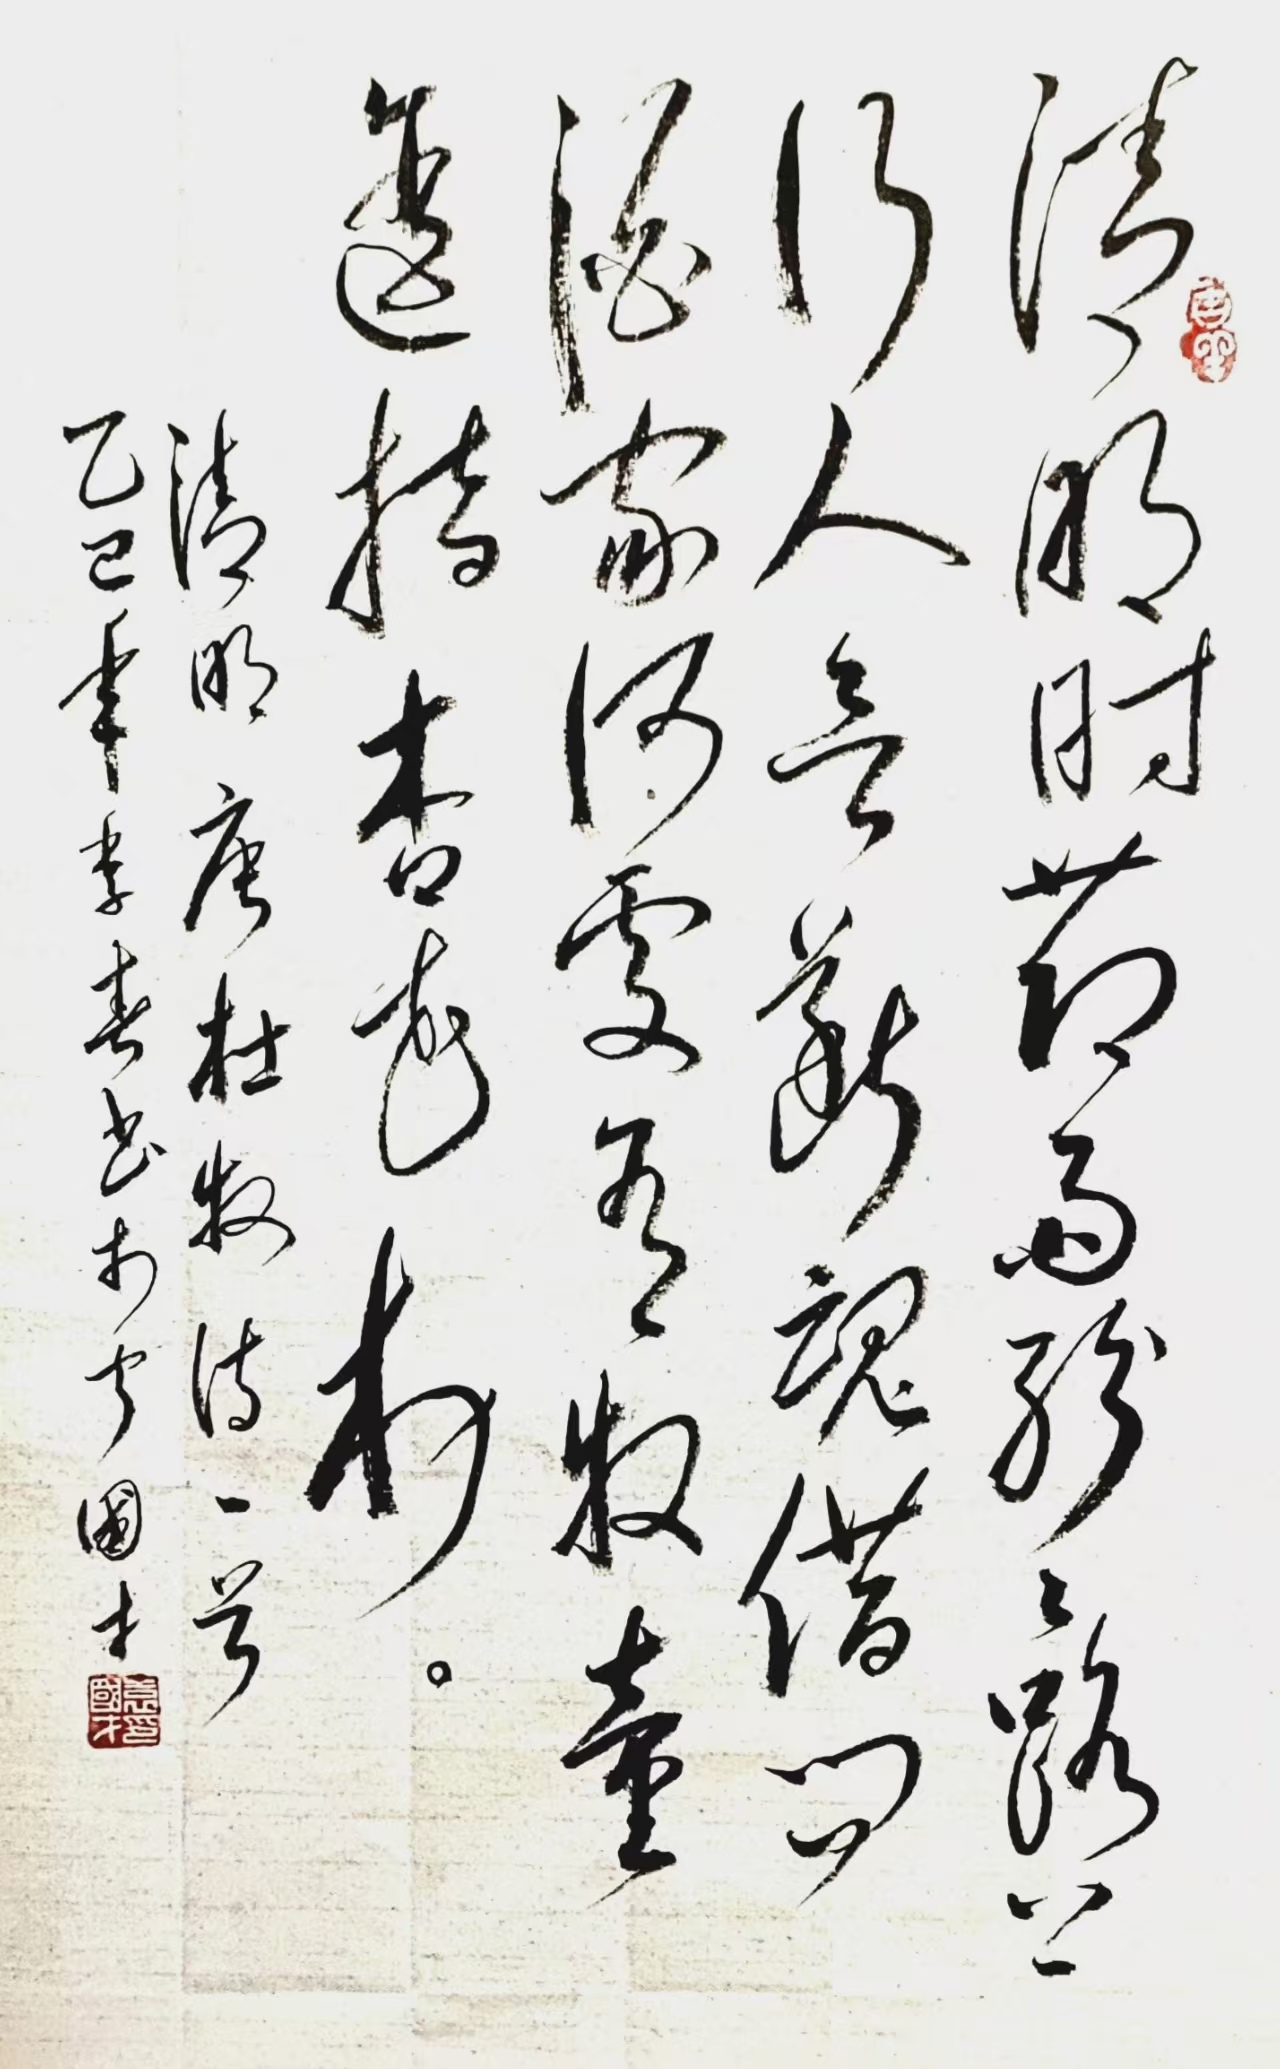 清明时节雨纷々路上
行人欲断魂借问
酒家何处有牧童
遥指杏花村。
清明唐杜牧诗一首
乙巳年季春书于宁國才